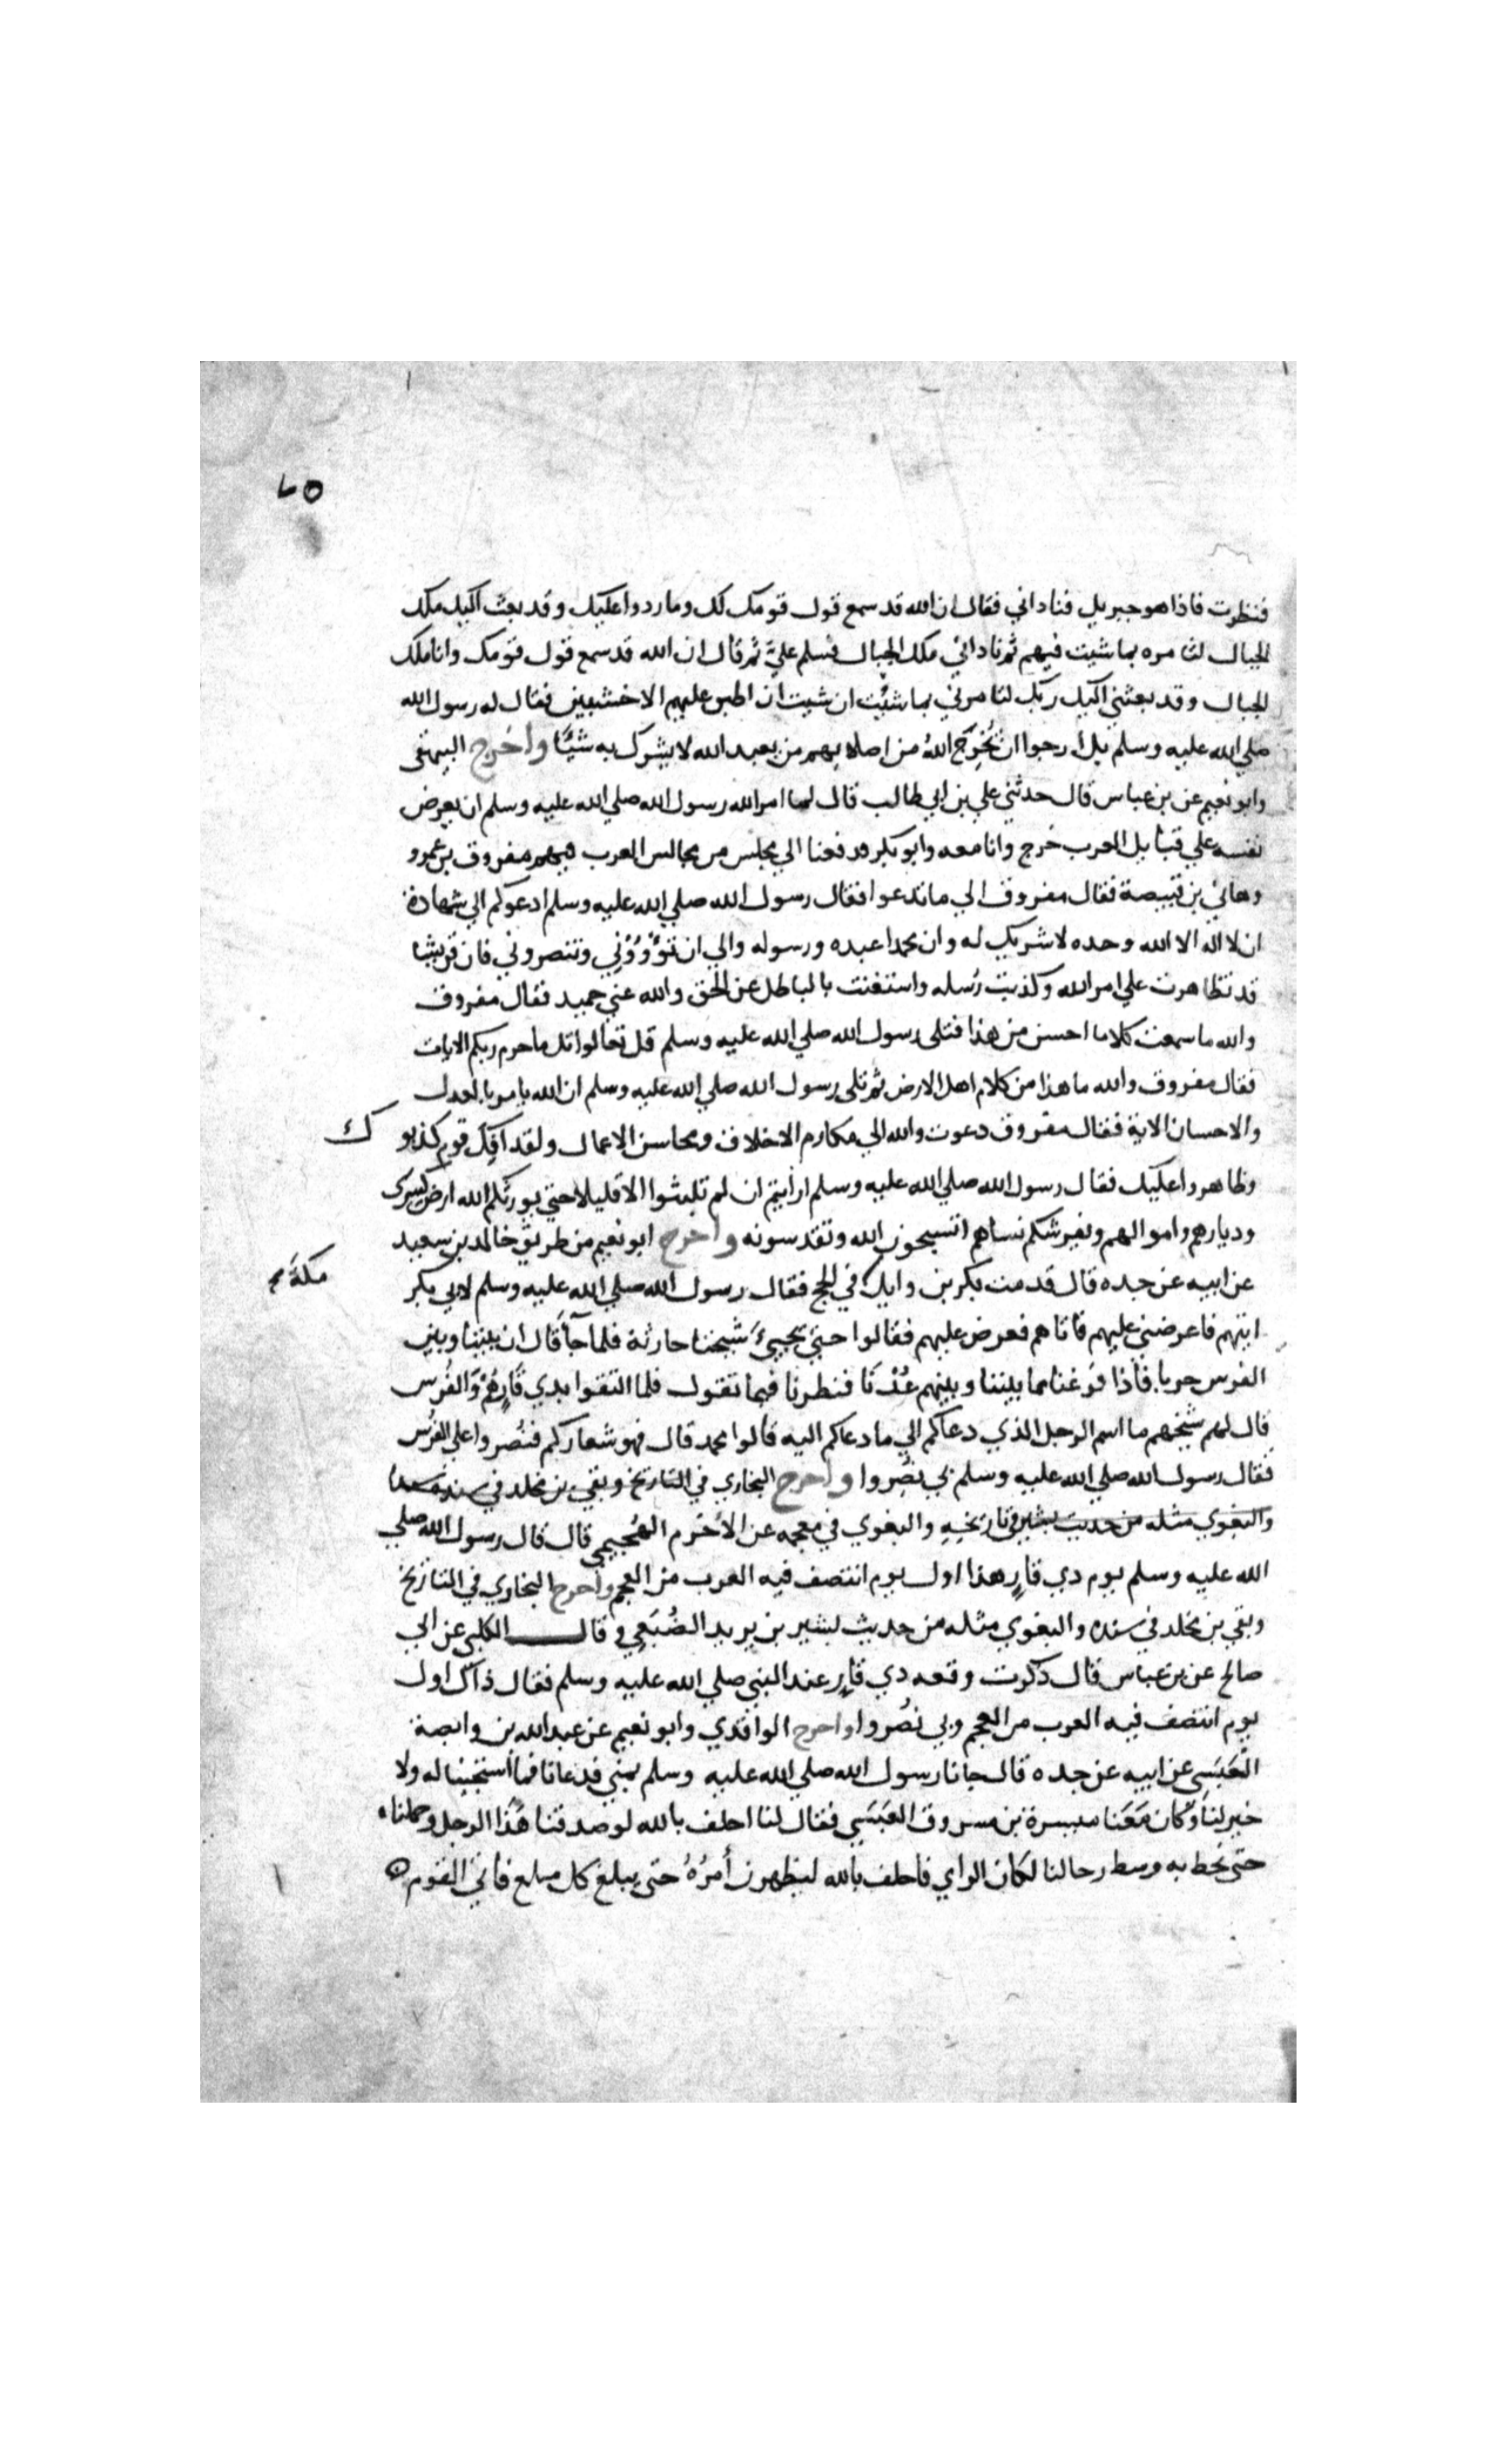 ٦٥
فنظرت فاذا هو جبريل فناداني فقال ان الله قد سمع قول قومك لك وما ردوا عليك وقد بعث اليك ملك
الجبال لتامره بما شيت فيهم ثم ناداني ملك الجبال فسلم عليَّ ثم قال ان الله قد سمع قول قومك وانا ملك
الجبال وقد بعثني اليك ربك لتامرني بما شئت ان شيت ان اطبق عليهم الاخشبين فقال له رسول الله
صلي الله عليه وسلم بل ارجوا ان يُخْرِجَ اللهُ من اصلابهم من يعبد الله لا يشرك به شيئًا واخرج البيهقى
وابو نعيم عن بن عباس قال حدثني علي بن ابي طالب قال لما امر الله رسول الله صلي الله عليه وسلم ان يعرض
نفسه علي قبايل العرب خرج وانا معه وابو بكر فدفعنا الي مجلس من مجالس العرب فيهم مفروق بن عمرو
وهاني بن قبيصة فقال مفروق الي ما تدعوا فقال رسول الله صلي الله عليه وسلم ادعوكم الي شهادة
ان لا اله الا الله وحده لا شريك له وان محمدا عبده ورسوله والي ان تؤوُوني وتنصروني فان قريشا
قد تظاهرت علي امر الله وكذبت رُسله واستغنت بالباطل عن الحق والله غني حميد فقال مفروق
والله ما سمعت كلاما احسن من هذا فتلى رسول الله صلي الله عليه وسلم قل تعالوا اتل ما حرم ربكم الايات
فقال مفروق والله ما هذا من كلام اهل الارض ثم تلى رسول الله صلي الله عليه وسلم ان الله يامر بالعدل
والاحسان الاية فقال مفروق دعوت والله الي مكارم الاخلاق ومحاسن الاعمال ولقد اَفِكَ قوم كذبو ك
وظاهروا عليك فقال رسول الله صلي الله عليه وسلم ارأيتم ان لم تلبثوا الا قليلا حتي يورثكم الله ارض كسرى
وديارهم واموالهم ويفرشكم نساهم اتسبحون الله وتقدسونه واخرج ابو نعيم من طريق خالد بن سعيد
عن ابيه عن جده قال قدمت بكر بن وايل في الحج فقال رسول الله صلي الله عليه وسلم لابي بكر
مكةَ
ايتهم فاعرضني عليهم فاتاهم فعرض عليهم فقالوا حتي يجيئَ شيخنا حارثة فلما جآ قال ان بيننا وبين
الفرس حربا فاذا فرغنا مما بيننا وبينهم عُدْنا فنظرنا فيما تقول فلما التقوا بدي قارٍ هُمْ والفُرس
قال لهم شيخهم ما اسم الرجل الذي دعاكم الي ما دعاكم اليه قالوا محمد قال فهو شعاركم فنُصروا علي الفُرس
فقال رسول الله صلي الله عليه وسلم بي نُصِروا واخرج البخاري في التاريخ وبقي بن مخلد في
والبغوي مثله من حديث بشير في تاريخيه والبغوي في معجمه عن الاخرم الهُجيمي قال قال رسول الله صلي
الله عليه وسلم يوم دي قارٍ هذا اول يوم انتصف فيه العرب من العجم واخرج البخاري في التاريخ
وبقي بن مخلد في سنده والبغوي مثله من حديث بشير بن يزيد الضُبَعي وقال الكلبي عن ابي
صالح عن بن عباس قال ذكرت وقعه دي قارٍ عند النبي صلي الله عليه وسلم فقال ذاك اول
يوم انتصف فيه العرب من العجم وبي نُصروا واخرج الواقدي وابو نعيم عن عبد الله بن وابصة
العَبَسي عن ابيه عن جده قال جانا رسول الله صلي الله عليه وسلم بمني فدعانا فما أستجبنا له ولا
خير لنا وكان مَعَنا ميسرة بن مسروق العَبَسي فقال لنا احلف بالله لو صدقنا هَذا الرجل وحملناه
حتى نحط به وسط رحالنا لكان الراي فاحلف بالله ليظهرن أمرُهُ حتى يبلغ كل مبلغ فابي القوم